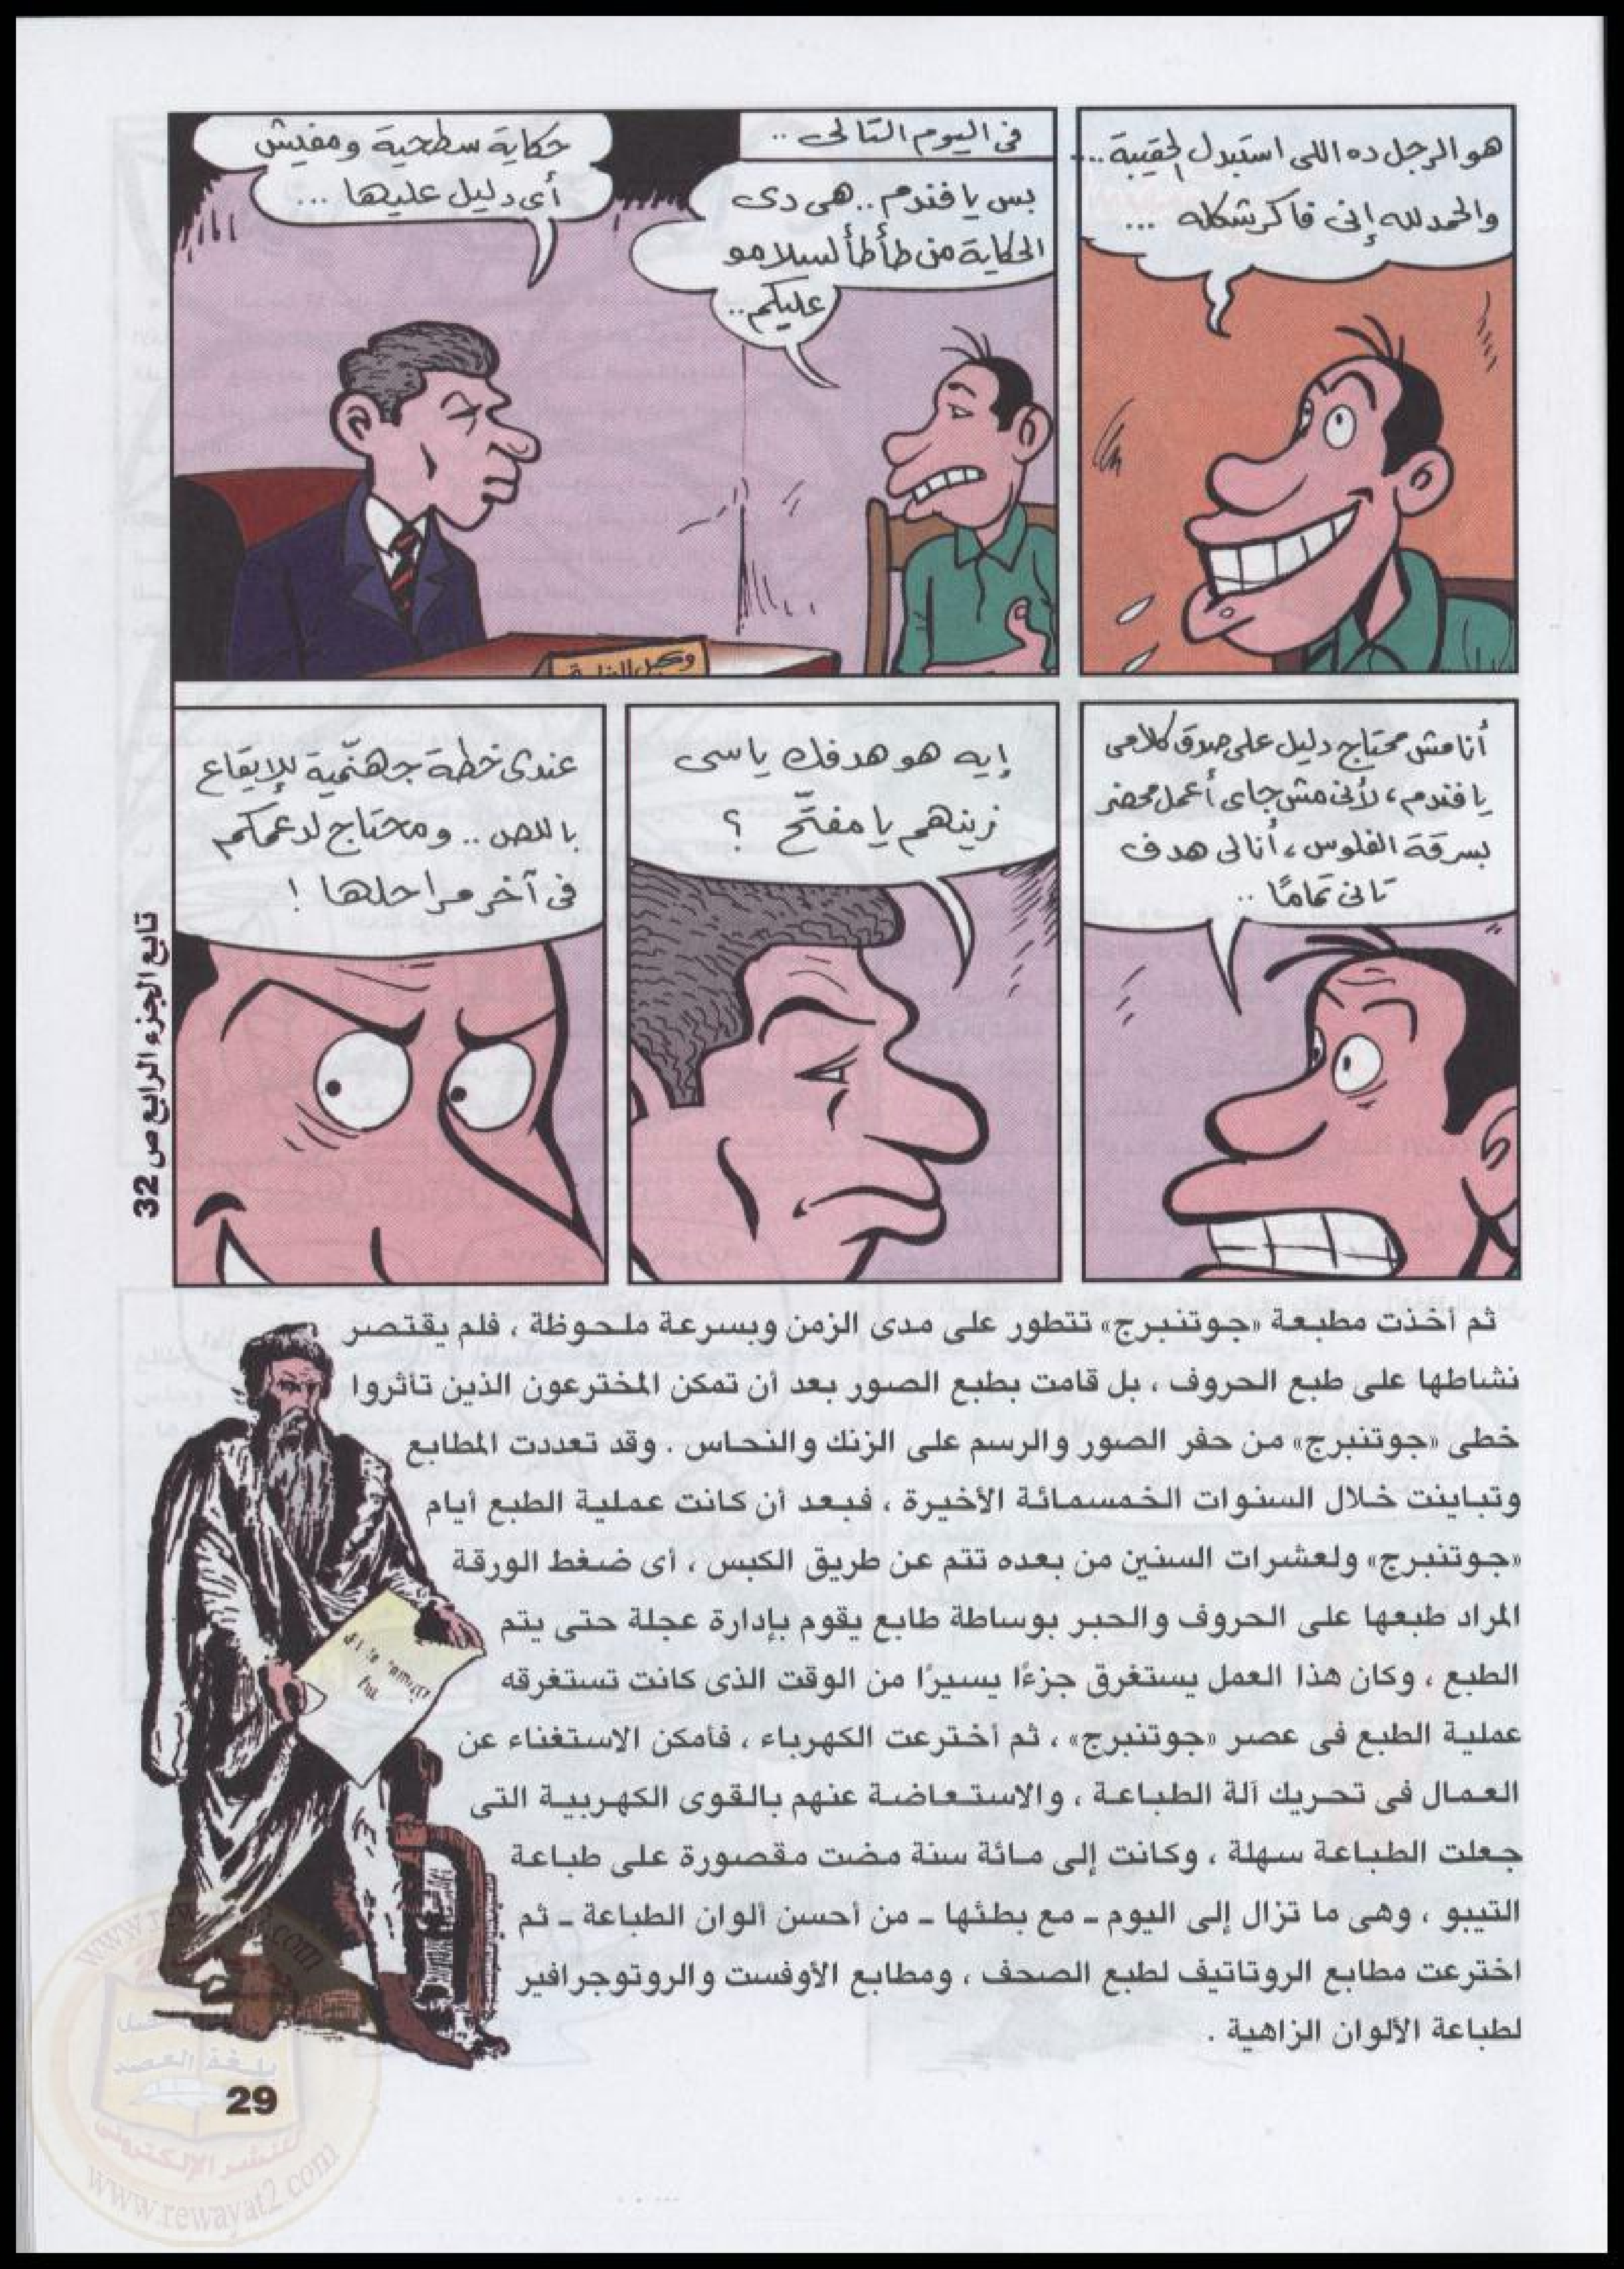 هو الرجل ده اللى استبدل الحقيبة...
والحمد لله إنى فاكر شكله ...
فى اليوم التالى ..
بس يا فندم .. هى دى
الحكاية من طأطأ لسلامو
عليكم..
حكاية سطحية ومفيش
أى دليل عليها ...
وكيل النيابة
أنا مش محتاج دليل على صدق كلامى
يا فندم، لأنى مش جاى أعمل محضر
بسرقة الفلوس، أنا لى هدف
تانى تمامًا ..
إيه هو هدفك يا سى
زينهم يا مفتّح ؟
عندى خطة جهنّمية للإيقاع
باللص .. ومحتاج لدعمكم
فى آخر مراحلها !
تابع الجزء الرابع ص 32
ثم أخذت مطبعة «جوتنبرج» تتطور على مدى الزمن وبسرعة ملحوظة ، فلم يقتصر
نشاطها على طبع الحروف ، بل قامت بطبع الصور بعد أن تمكن المخترعون الذين تأثروا
خطى «جوتنبرج» من حفر الصور والرسم على الزنك والنحاس . وقد تعددت المطابع
وتباينت خلال السنوات الخمسمائة الأخيرة ، فبعد أن كانت عملية الطبع أيام
«جوتنبرج» ولعشرات السنين من بعده تتم عن طريق الكبس ، أى ضغط الورقة
المراد طبعها على الحروف والحبر بوساطة طابع يقوم بإدارة عجلة حتى يتم
الطبع ، وكان هذا العمل يستغرق جزءًا يسيرًا من الوقت الذى كانت تستغرقه
عملية الطبع فى عصر «جوتنبرج» ، ثم أخترعت الكهرباء ، فأمكن الاستغناء عن
العمال فى تحريك آلة الطباعة ، والاستعاضة عنهم بالقوى الكهربية التى
جعلت الطباعة سهلة ، وكانت إلى مائة سنة مضت مقصورة على طباعة
التيبو ، وهى ما تزال إلى اليوم ـ مع بطئها ـ من أحسن ألوان الطباعة ـ ثم
اخترعت مطابع الروتاتيف لطبع الصحف ، ومطابع الأوفست والروتوجرافير
لطباعة الألوان الزاهية .
بلغة العصر
للنشر الإلكترونى
www.rewayat2.com
29